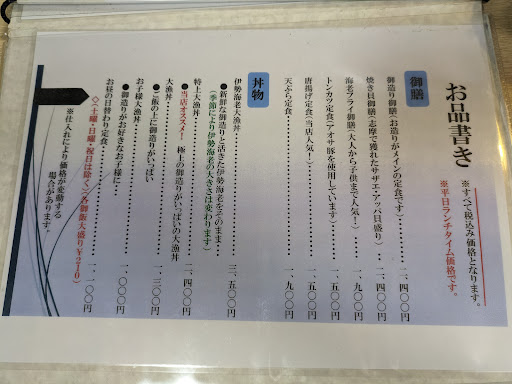 お品書き
※すべて税込み価格となります。
※平日ランチタイム価格です。
御膳
御造り御膳(お造りがメインの定食です)・・・・・二、四〇〇円
焼き貝御膳(志摩で獲れたサザエ・アッパ貝盛り)・・二、四〇〇円
海老フライ御膳(大人から子供まで人気!)・・・・一、九〇〇円
トンカツ定食(アオサ豚を使用しています)・・・・一、五〇〇円
唐揚げ定食(当店人気!)・・・・・一、五〇〇円
天ぷら定食・・・・・一、九〇〇円
丼物
伊勢海老大漁丼・・・・・三、五〇〇円
●新鮮な御造りと活きた伊勢海老をそのまま・・・
(季節により伊勢海老の大きさは変わります)
特上大漁丼・・・・・二、四〇〇円
●当店オススメ! 極上の御造りがいっぱいの大漁丼
大漁丼・・・・・一、三〇〇円
●ご飯の上に御造りがいっぱい
お子様大漁丼・・・・・一、〇〇〇円
●御造りがお好きなお子様に
お昼の日替わり定食・・・・・一、一〇〇円
◇(土曜・日曜・祝日は除く)(各御飯大盛り¥210)
※仕入れにより価格が変動する
場合があります。